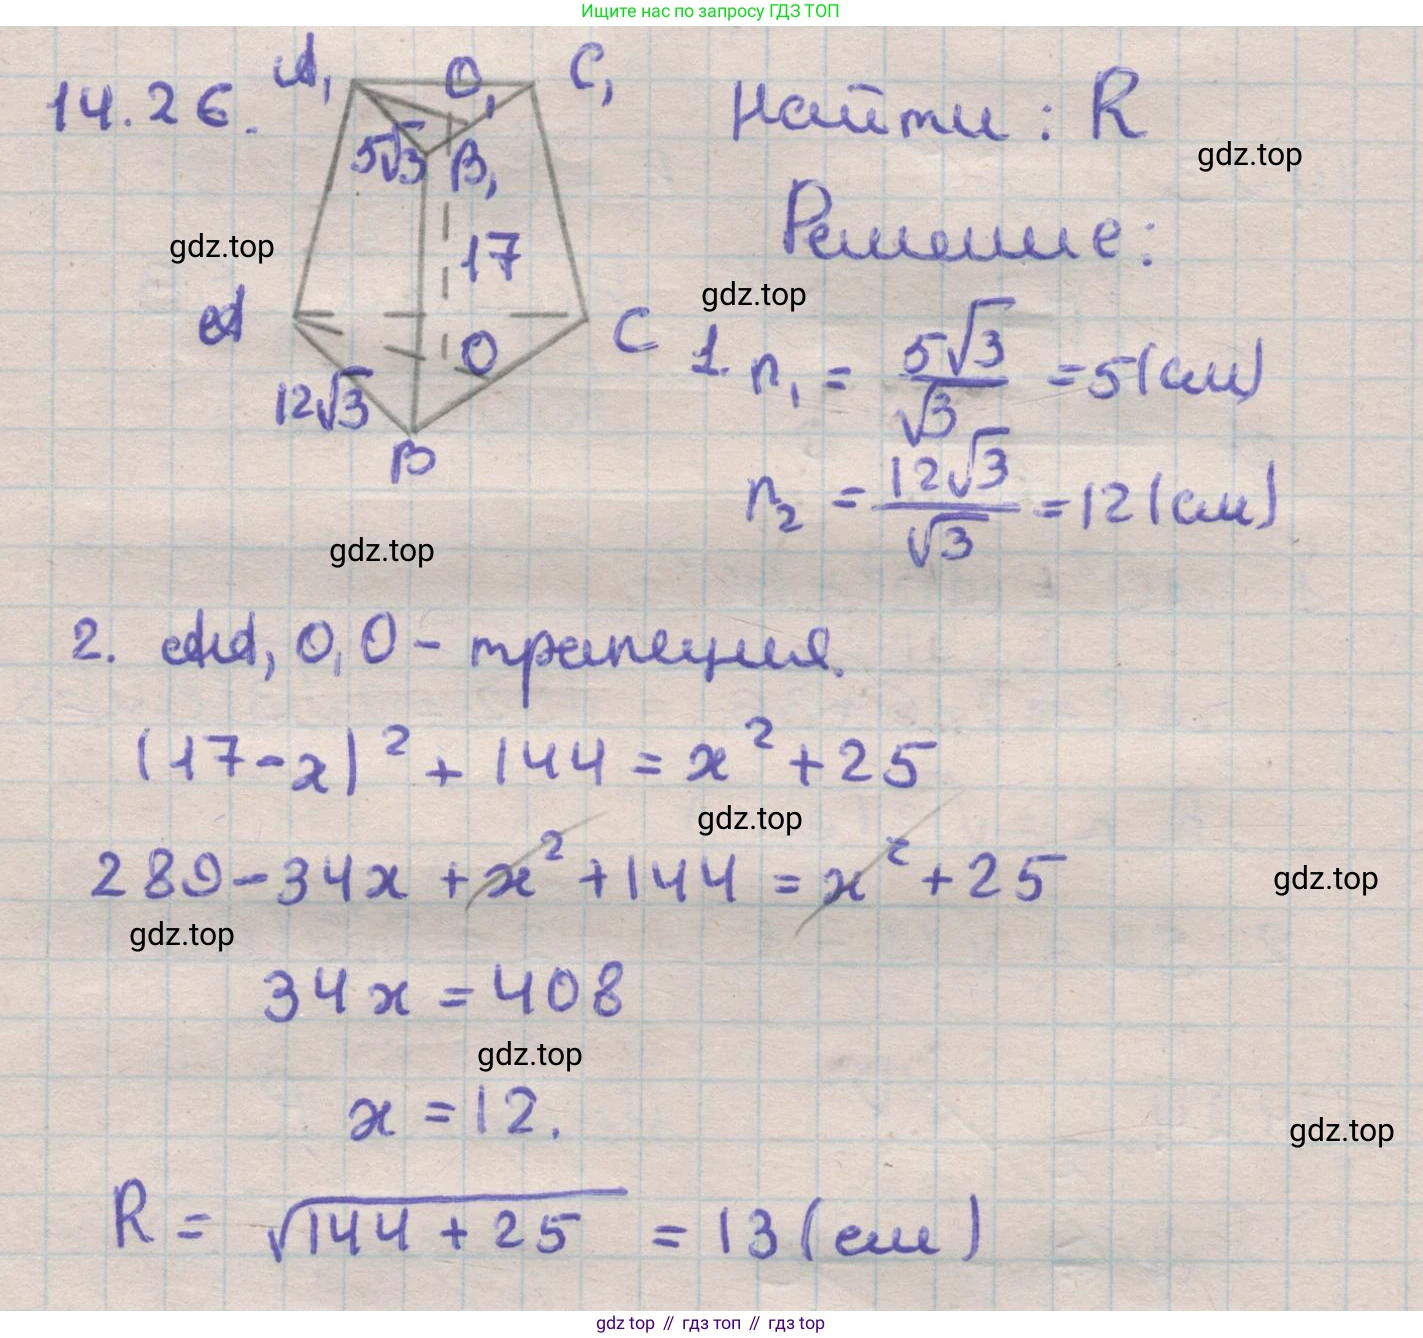 Ищите нас по запросу ГДЗ ТОП
14.26.
A₁
O₁
C₁
5√3
B₁
17
A
O
C
12√3
B
Найти: R
gdz.top
Решение:
gdz.top
gdz.top
1. r₁ = 5√3/√3 = 5 (см)
r₂ = 12√3/√3 = 12 (см)
gdz.top
2. AA₁O₁O - трапеция.
(17-x)² + 144 = x² + 25
gdz.top
289 - 34x + x² + 144 = x² + 25
gdz.top
gdz.top
34x = 408
gdz.top
x = 12.
gdz.top
R = √144 + 25 = 13 (см)
gdz top // гдз топ // gdz top